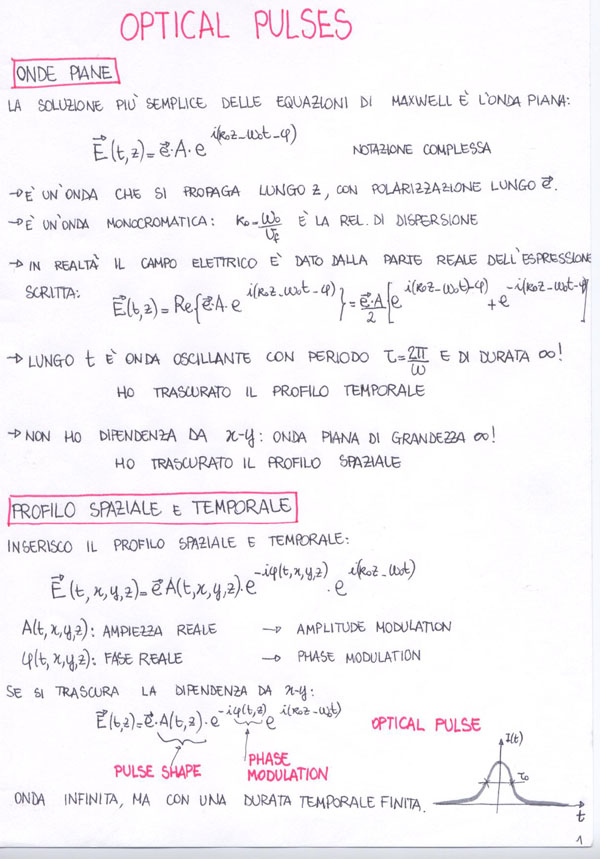 OPTICAL PULSES
ONDE PIANE
LA SOLUZIONE PIÙ SEMPLICE DELLE EQUAZIONI DI MAXWELL È L'ONDA PIANA:
E⃗(t,z)=e⃗·A·e^{i(k₀z-ω₀t-φ)} NOTAZIONE COMPLESSA
→È UN'ONDA CHE SI PROPAGA LUNGO Z, CON POLARIZZAZIONE LUNGO e⃗.
→È UN'ONDA MONOCROMATICA: k₀=ω₀/v_f È LA REL. DI DISPERSIONE
→ IN REALTÀ IL CAMPO ELETTRICO È DATO DALLA PARTE REALE DELL'ESPRESSIONE
SCRITTA: E⃗(t,z)=Re{e⃗·A·e^{i(k₀z-ω₀t-φ)}}=e⃗·A/2[e^{i(k₀z-ω₀t)-φ)}+e^{-i(k₀z-ω₀t-φ)}]
→ LUNGO t È ONDA OSCILLANTE CON PERIODO τ=2π/ω E DI DURATA ∞!
HO TRASCURATO IL PROFILO TEMPORALE
→ NON HO DIPENDENZA DA x-y: ONDA PIANA DI GRANDEZZA ∞!
HO TRASCURATO IL PROFILO SPAZIALE
PROFILO SPAZIALE E TEMPORALE
INSERISCO IL PROFILO SPAZIALE E TEMPORALE:
E⃗(t,x,y,z)=e⃗A(t,x,y,z)·e^{-iφ(t,x,y,z)}·e^{i(k₀z-ω₀t)}
A(t,x,y,z): AMPIEZZA REALE → AMPLITUDE MODULATION
φ(t,x,y,z): FASE REALE → PHASE MODULATION
SE SI TRASCURA LA DIPENDENZA DA x-y:
E⃗(t,z)=e⃗·A(t,z)·e^{-iφ(t,z)}e^{i(k₀z-ω₀t)}
OPTICAL PULSE
I(t)
PULSE SHAPE
PHASE
MODULATION
τ₀
ONDA INFINITA, MA CON UNA DURATA TEMPORALE FINITA.
t
1